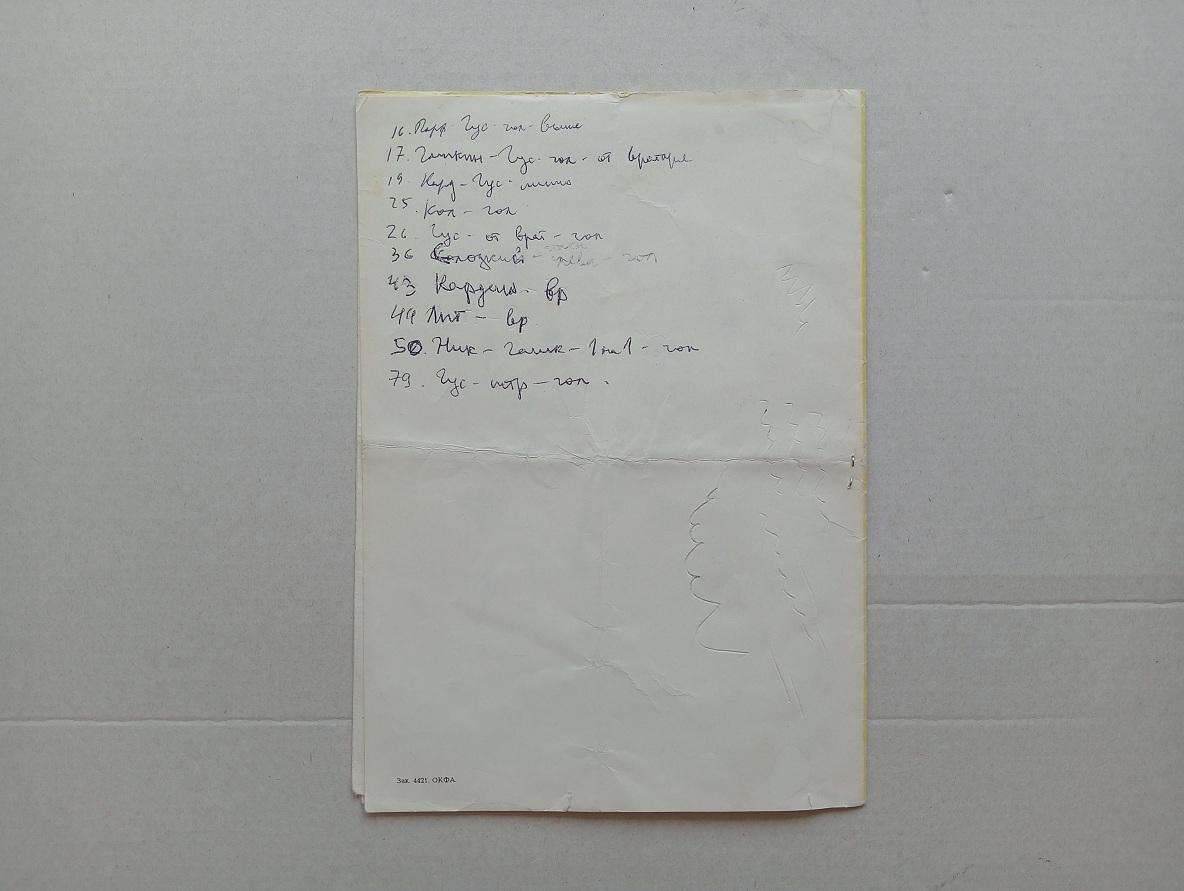 16. Парф - Гус - гол - выше
17. Галикин - Гус - гол - от вратаря
19. Кард - Гус - мимо
25. Кол - гол
26 Гус - от врат - гол
36 - гол
43 Кардаш. вр
49 Лит - вр
50. Ник - Галик - 1 на 1 - гол
79. Гус - штр - гол.
Зак. 4421. ОКФА.